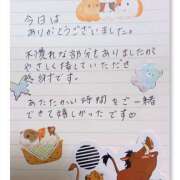 今日は
ありがとうございました。
不慣れな部分もありましたが
やさしく接していただき
感謝です。
あたたかい時間をご一緒
できて嬉しかったです♡